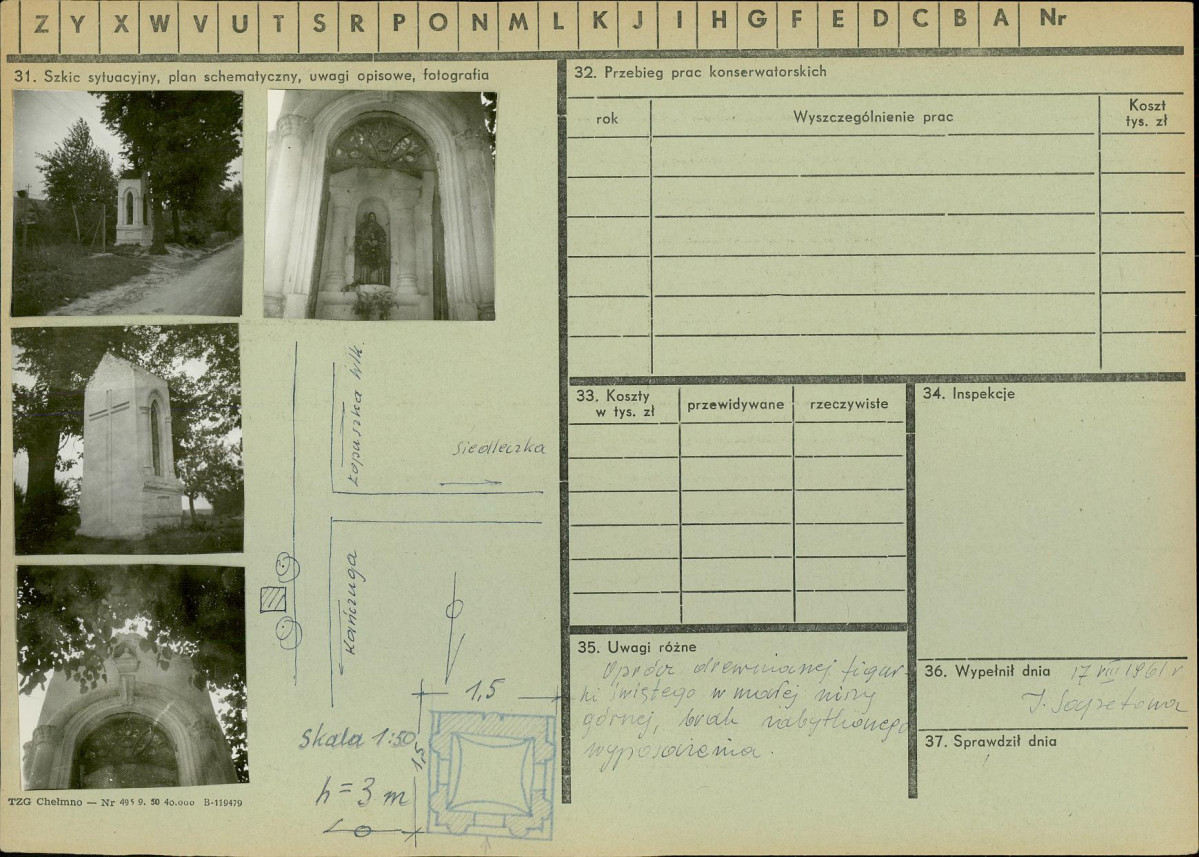 Z Y X W V U T S R P O N M L K J I H G F E D C B A Nr
31. Szkic sytuacyjny, plan schematyczny, uwagi opisowe, fotografia
Łopuszka Wlk.
Siedleczka
Kańczuga
1,5
Skala 1:50
1,5
h = 3 m
TZG Chełmno — Nr 495 9. 50 40.000 B-119479
32. Przebieg prac konserwatorskich
rok
Wyszczególnienie prac
Koszt
tys. zł
33. Koszty
w tys. zł
przewidywane
rzeczywiste
34. Inspekcje
35. Uwagi różne
Oprócz drewnianej figur-
ki świętego w małej niszy
górnej, brak zabytkowego
wyposażenia.
36. Wypełnił dnia 17 VIII 1961 r
J.
37. Sprawdził dnia